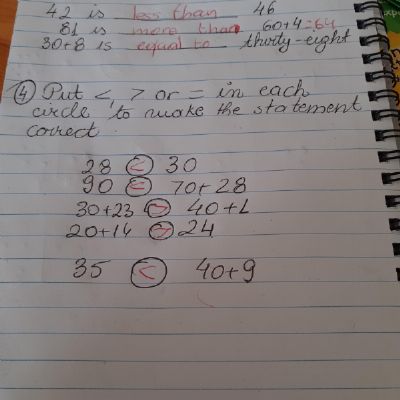 42 is less than 46
81 is more than 60+4=64
30+8 is equal to thirty-eight
④ Put <, > or = in each
circle to make the statement
correct.
28 < 30
90 < 70+28
30+23 > 40+1
20+14 > 24
35 < 40+9